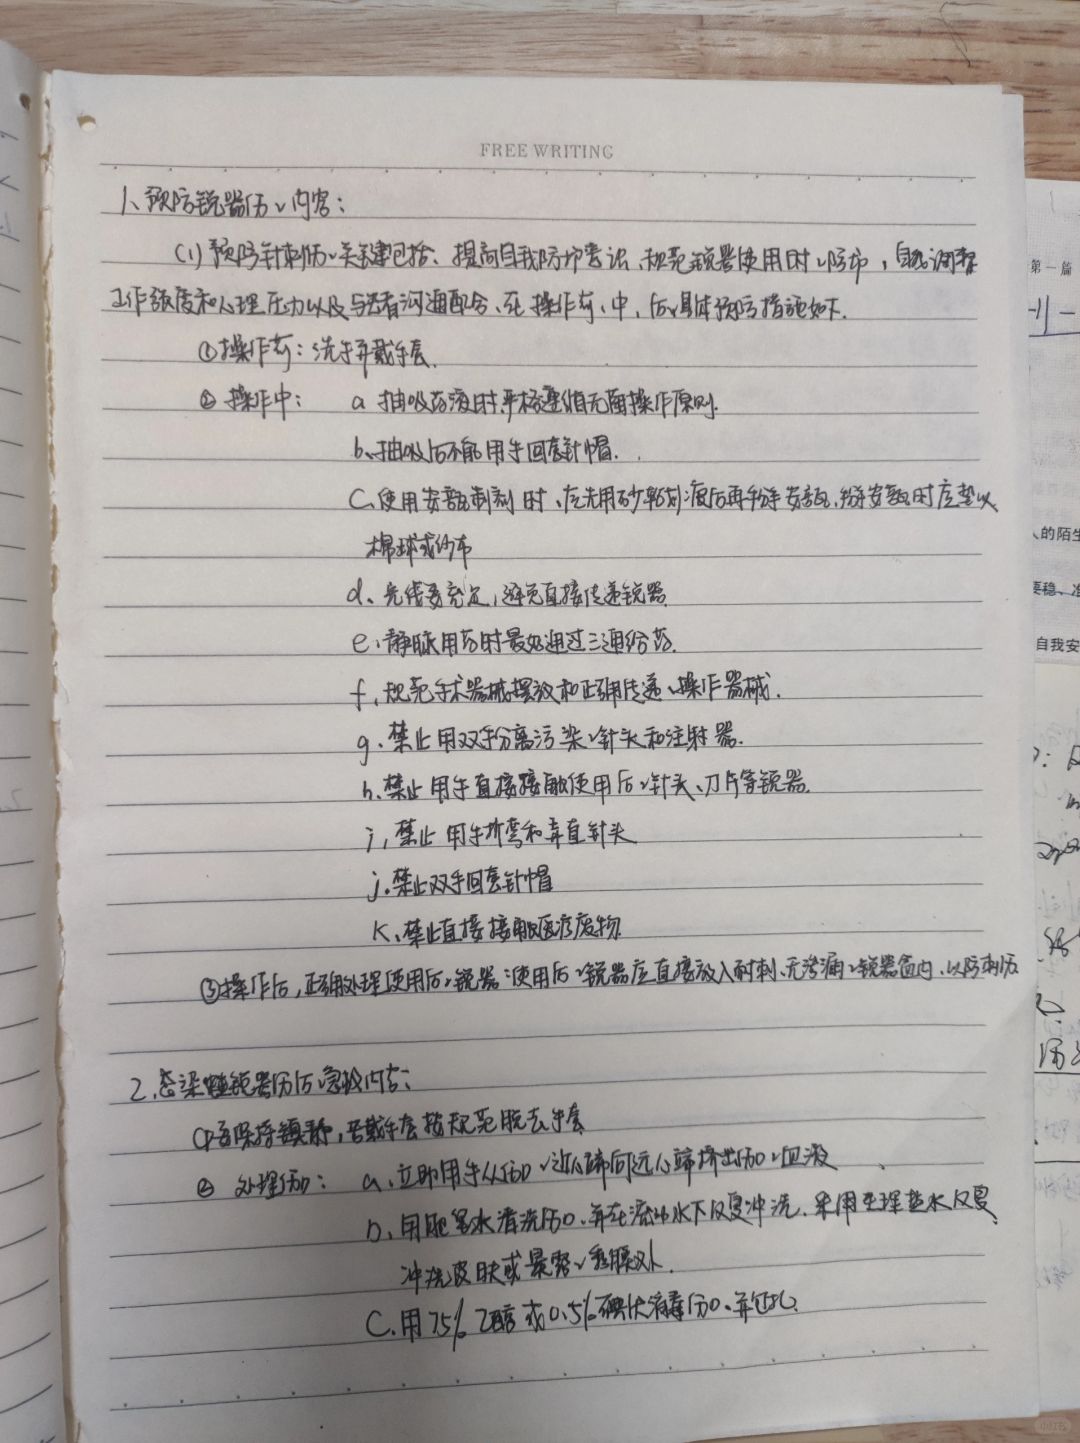 FREE WRITING
1、预防锐器伤、内容:
(1) 预防针刺伤、关键包括:提高自我防护意识、规范锐器使用时、防护,自我调整
工作强度和心理压力以及与患者沟通配合、在操作前、中,后、具体预防措施如下.
①操作前:洗手并戴手套.
②操作中: a 抽吸药液时严格遵循无菌操作原则.
b、抽吸后不能用手回套针帽.
C、使用安瓿制剂时、应先用砂轮划痕后再掰安瓿,掰安瓿时应垫以
棉球或纱布
d、光线要充足,避免直接传递锐器
e、静脉用药时最好通过三通给药.
f、规范手术器械摆放和正确传递、操作器械.
g、禁止用双手分离污染、针头和注射器.
h、禁止用手直接接触使用后、针头、刀片等锐器.
i、禁止用手折弯和弄直针头
j、禁止双手回套针帽
K、禁止直接接触医疗废物
③操作后,正确处理使用后、锐器:使用后、锐器应直接放入耐刺、无渗漏、锐器盒内、以防刺伤
2、感染性锐器伤后、急救内容:
保持镇静,若戴手套按规范脱去手套
② 处理伤口: a、立即用手从伤口、近心端向远心端挤出伤口、血液
b、用肥皂水清洗伤口、并在流动水下反复冲洗、采用生理盐水反复
冲洗皮肤或暴露、黏膜处.
C、用75%乙醇或0.5%碘伏消毒伤口、并包扎.
第一篇
人的陌生
要稳、准
自我安